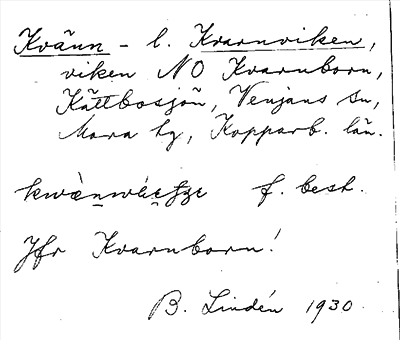 Kvänn - l. Kvarnviken,
viken NO Kvarnborn,
Kättbosjön, Venjans sn,
Mora tg, Kopparb. län.
f. best.
Jfr Kvarnborn!
B. Lindén 1930